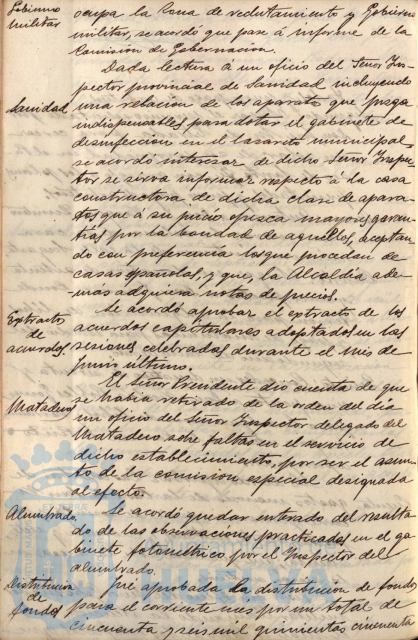 Gobierno
militar
ocupa la Zona de reclutamiento y Gobierno
militar, se acordó que pase á informe de la
Comisión de Gobernación.
Sanidad
Dada lectura á un oficio del Señor Ins-
pector provincial de Sanidad incluyendo
una relación de los aparatos que juzga
indispensables para dotar el gabinete de
desinfección en el lazareto municipal,
se acordó interesar de dicho Señor Inspec-
tor se sirva informar respecto á la casa
constructora de dicha clase de apara-
tos que á su juicio ofrezca mayores garan-
tías por la bondad de aquellos, aceptan-
do con preferencia los que procedan de
casas españolas, y que, la Alcaldía ade-
más adquiera notas de precios.
Extracto
de
acuerdos.
Se acordó aprobar el extracto de los
acuerdos capitulares adoptados en las
sesiones celebradas durante el mes de
Junio último.
Matadero
El Señor Presidente dió cuenta de que
se había retirado de la orden del día
un oficio del Señor Inspector delegado del
Matadero, sobre faltas en el servicio de
dicho establecimiento, por ser el asun-
to de la comisión especial designada
al efecto.
Alumbrado.
Se acordó quedar enterado del resulta-
do de las observaciones practicadas en el ga-
binete fotométrico por el Inspector del
alumbrado.
Distribución
de
fondos
Fué aprobada la distribución de fondos
para el corriente mes por un total de
cincuenta y seis mil quinientas cincuenta